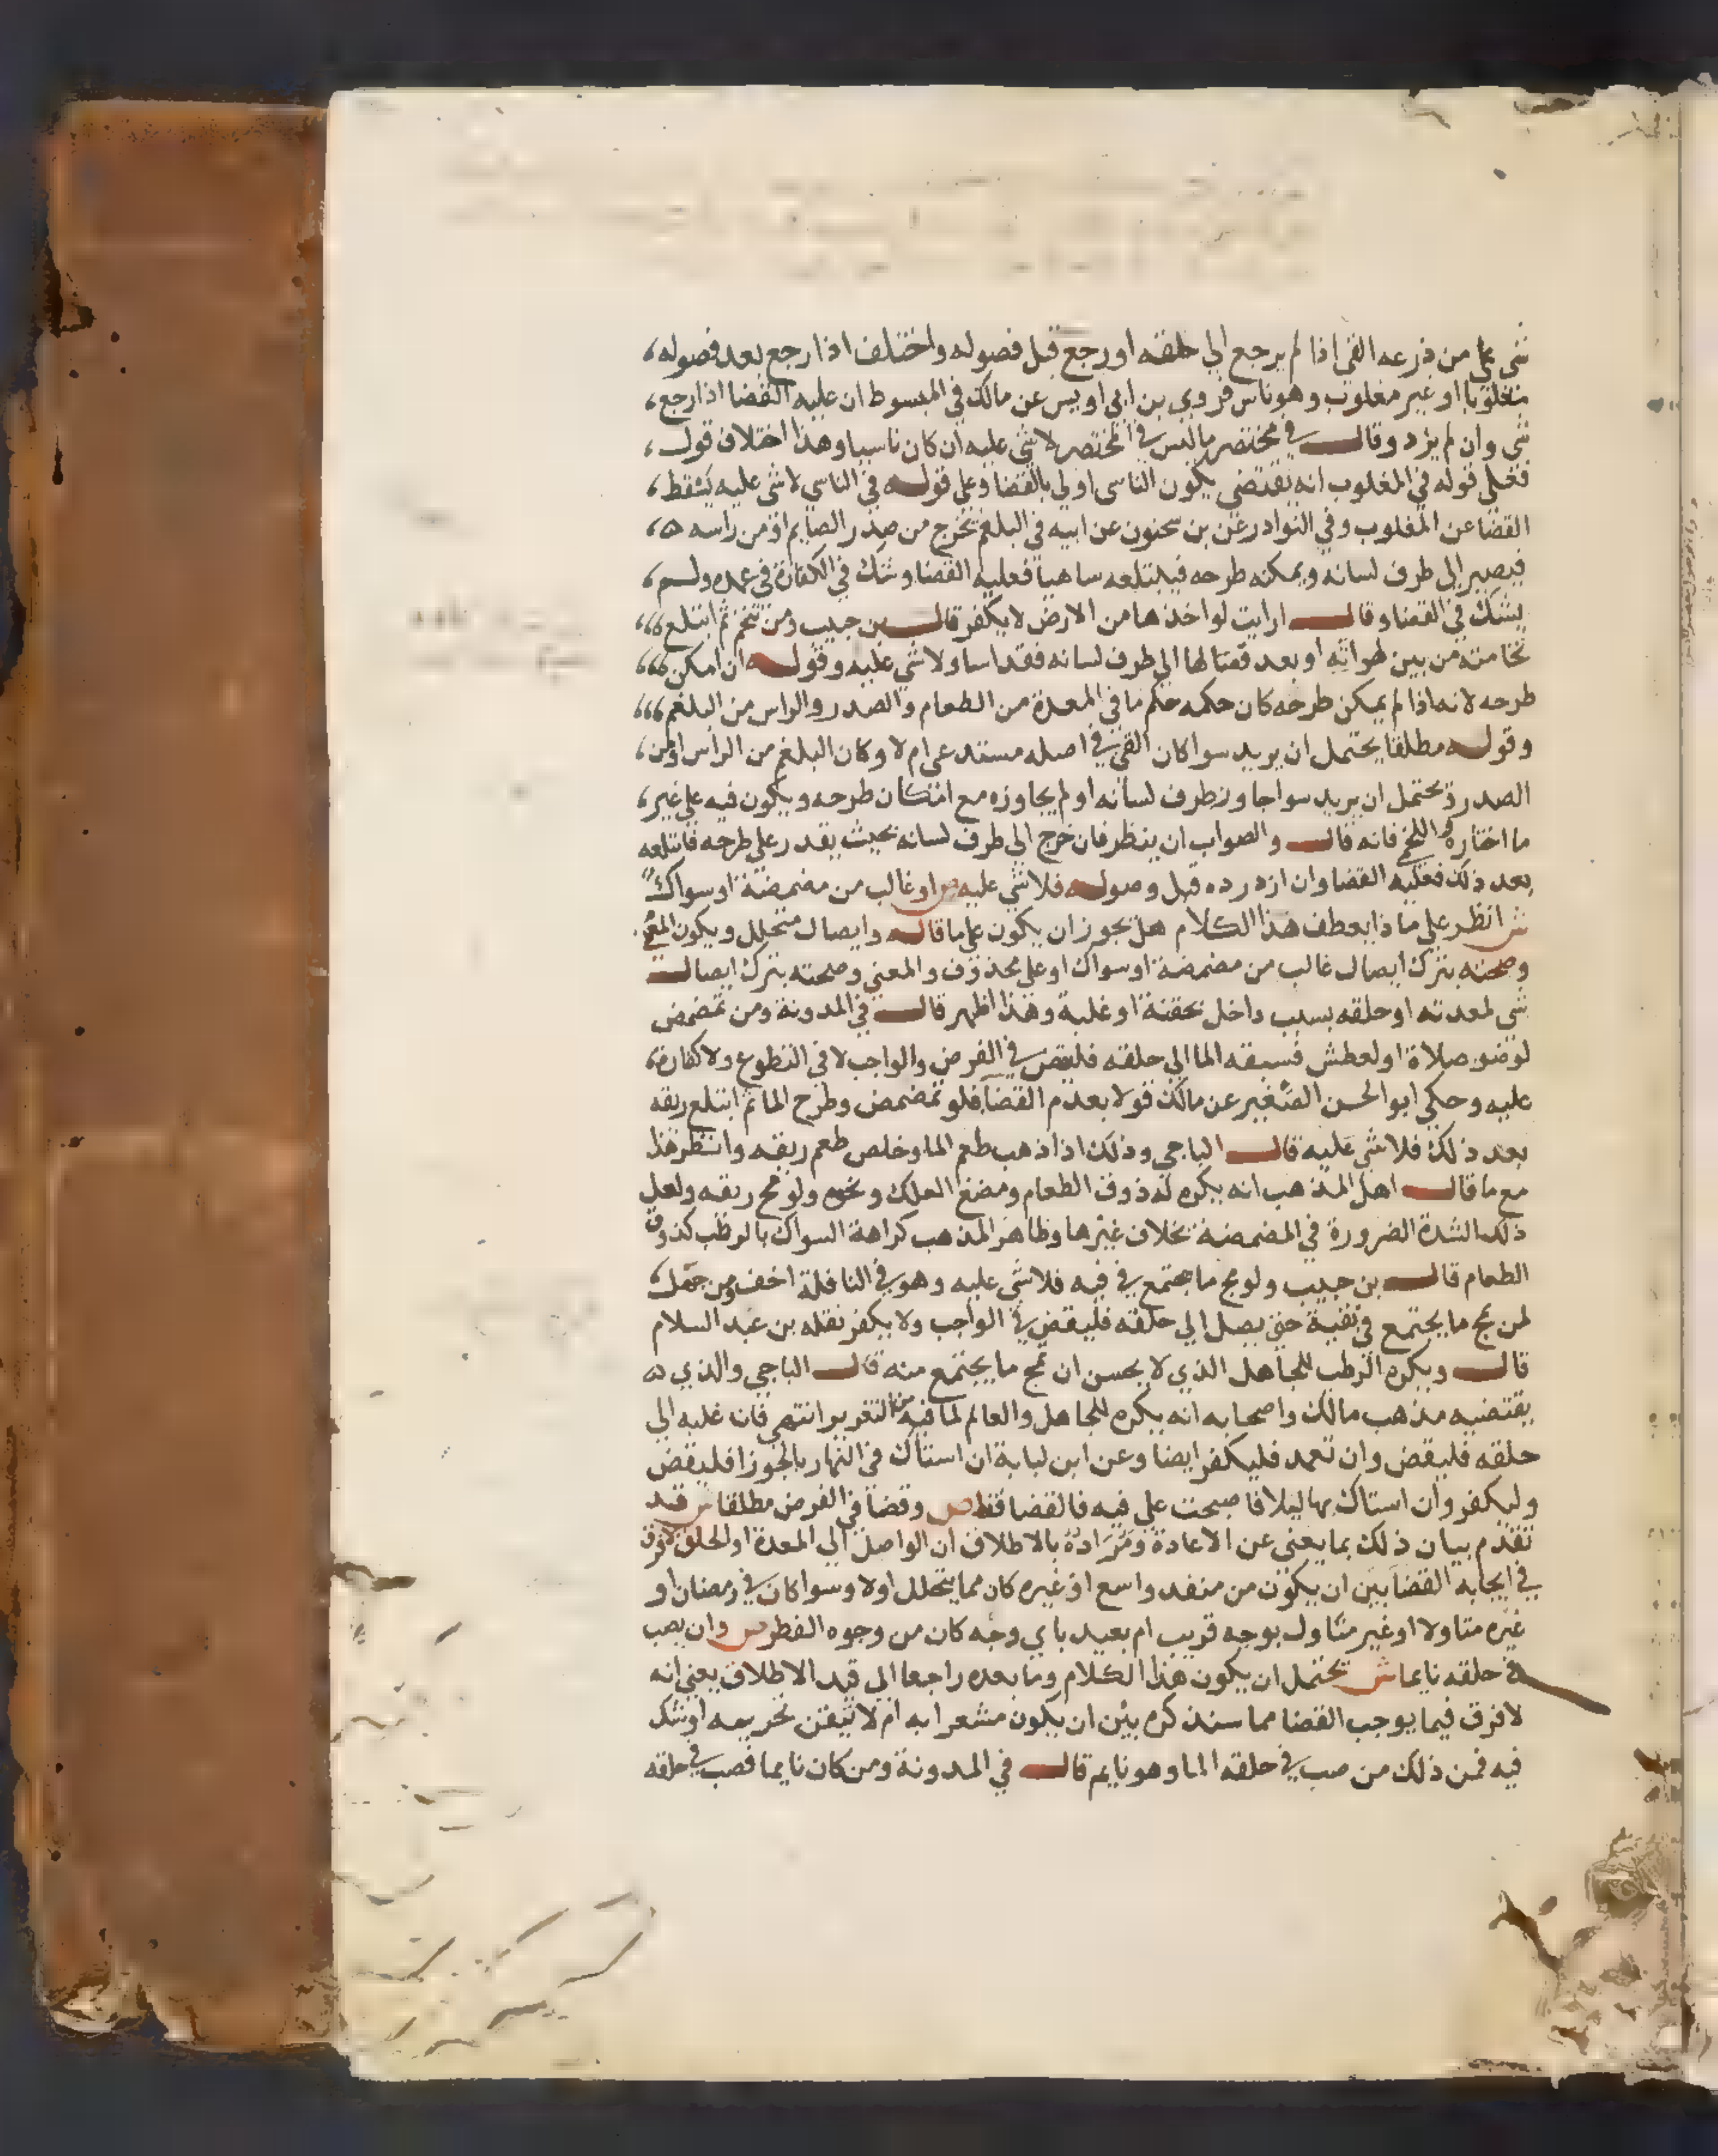 شي على من ذرعه القي اذا لم يرجع الى حلقه او رجع قبل فصوله واختلف اذا رجع بعد فصوله،
مغلوبا او غير مغلوب وهو ناس فروي بن ابي اويس عن مالك في المبسوط ان عليه القضا اذا رجع،
شي وان لم يزد وقال في مختصر ما ليس في المختصر لا شي عليه ان كان ناسيا وهذا اختلاف قول،
فعلى قوله في المغلوب انه يقتضي يكون الناسي اولى بالقضا وعلى قوله في الناسي لا شي عليه يسقط،
القضا عن المغلوب وفي النوادر عن بن سحنون عن ابيه في البلغم يخرج من صدر الصايم او من راسه ه،
فيصير الى طرف لسانه ويمكنه طرحه فيبتلعه ساهيا فعليه القضا وشك في الكفارة في عمده ولم،
يشك في القضا وقال ارايت لو اخذها من الارض لا يكفر قال بن حبيب ومن تنخم ثم ابتلع ه،،
نخامته من بين لهواته او بعد فصالها الى طرف لسانه فقد اسا ولا شي عليه وقوله ان امكن ،،،
طرحه لانه اذا لم يمكن طرحه كان حكمه حكم ما في المعدة من الطعام والصدر والراس من البلغم ،،،
وقوله مطلقا يحتمل ان يريد سوا كان القي في اصله مستدعى ام لا وكان البلغم من الراس او من،
الصدر ويحتمل ان يريد سوا جاوز طرف لسانه او لم يجاوزه مع امكان طرحه ويكون فيه على غير،
ما اختاره اللخمي فانه قال والصواب ان ينظر فان خرج الى طرف لسانه بحيث يقدر على طرحه فابتلعه
بعد ذلك فعليه القضا وان ازدرده قبل وصوله فلا شي عليه ص او غالب من مضمضة او سواك
ش انظر على ماذا يعطف هذا الكلام هل يجوز ان يكون على ما قاله وايصال متحلل ويكون المعنى
وصحته بترك ايصال غالب من مضمضة او سواك او على محذوف والمعني وصحته بترك ايصال
شي لمعدته او حلقه بسبب داخل بحقنة او غلبة وهذا اظهر قال في المدونة ومن تمضمض
لوضو صلاة او لعطش فسبقه الما الى حلقه فليقض في الفرض والواجب لا في التطوع ولا كفارة،
عليه وحكي ابو الحسن الصغير عن مالك قولا بعدم القضا فلو تمضمض وطرح الما ثم ابتلع ريقه
بعد ذلك فلا شي عليه قال الباجي وذلك اذا ذهب طعم الما وخلص طعم ريقه وانظر هذا
مع ما قاله اهل المذهب انه يكره له ذوق الطعام ومضغ العلك ونحوه ولو مج ريقه ولعل
ذلك لشدة الضرورة في المضمضة بخلاف غيرها وظاهر المذهب كراهة السواك بالرطب كذوق
الطعام قال بن حبيب ولو مج ما يجتمع في فيه فلا شي عليه وهو في النافلة اخف ومن جهل،
لمن مج ما يجتمع في فيه حتى يصل الى حلقه فليقض في الواجب ولا يكفر نقله بن عبد السلام
قال ويكره الرطب للجاهل الذي لا يحسن ان يمج ما يجتمع منه قال الباجي والذي ه
يقتضيه مذهب مالك واصحابه انه يكره للجاهل والعالم لما فيه من التغرير انتهى فان غلبه الى
حلقه فليقض وان تعمد فليكفر ايضا وعن ابن لبابة ان استاك في النهار بالجوزا فليقض
وليكفر وان استاك بها ليلا فاصبحت على فيه فالقضا فقط ص وقضا في الفرض مطلقا ش قد
تقدم بيان ذلك بما يغني عن الاعادة ومراده بالاطلاق ان الواصل الى المعدة او الحلق لا فرق
في ايجابه القضا بين ان يكون من منفد واسع او غيره كان مما يتحلل اولا وسوا كان في رمضان او
غيره متاولا او غير متاول بوجه قريب ام بعيد باي وجه كان من وجوه الفطر ص وان بصب
في حلقه نايما ش يحتمل ان يكون هذا الكلام وما بعده راجعا الى قيد الاطلاق يعني انه
لا فرق فيما يوجب القضا مما سنذكره بين ان يكون مشعرا به ام لا تيقن تحريمه او شك
فيه فمن ذلك من صب في حلقه الما وهو نايم قال في المدونة ومن كان نايما فصب في حلقه